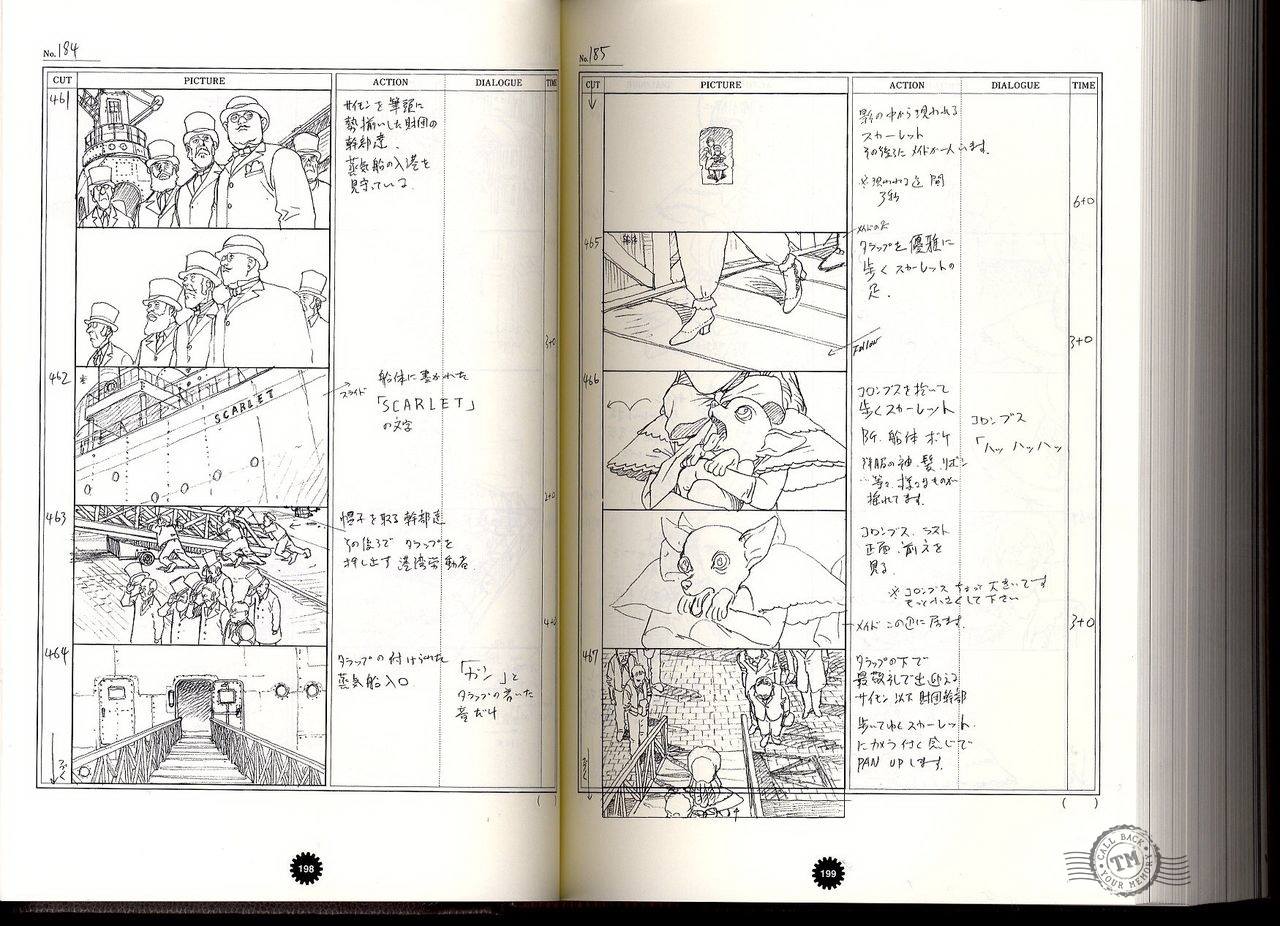 No. 184
CUT PICTURE ACTION DIALOGUE TIME
461
サイモンを筆頭に
勢揃いした財団の
幹部達.
蒸気船の入港を
見守っている
3+0
462
SCARLET
スライド
船体に書かれた
「SCARLET」
の文字
2+0
463
帽子を取る幹部達
その後ろで タラップを
押し出す 港湾労働者.
4+0
464
タラップの付けられた
蒸気船入口
「ガン」と
タラップの着いた
音だけ
つづく
( )
198
No. 185
CUT PICTURE ACTION DIALOGUE TIME
影の中から現われる
スカーレット
その後ろに メイドが一人います.
※現われる迄 間
3秒
6+0
465
タラップを 優雅に
歩く スカーレットの
足.
Follow
3+0
466
コロンブスを抱いて
歩くスカーレット
BG. 船体 ボケ
洋服の袖、髪、リボン
等々 揺れてます.
コロンブス
「ハッ ハッハッ
コロンブス、ラスト
正面、前えを
見る
※ コロンブス ちょっと大きいです
もっと小さくして下さい
メイド この辺に居ます.
3+0
467
タラップの下で
最敬礼で出迎える
サイモン以下 財団幹部
歩いてゆくスカーレット.
にカメラ付く感じで
PAN UP します.
つづく
( )
199
CALL BACK
TM
YOUR MEMORY